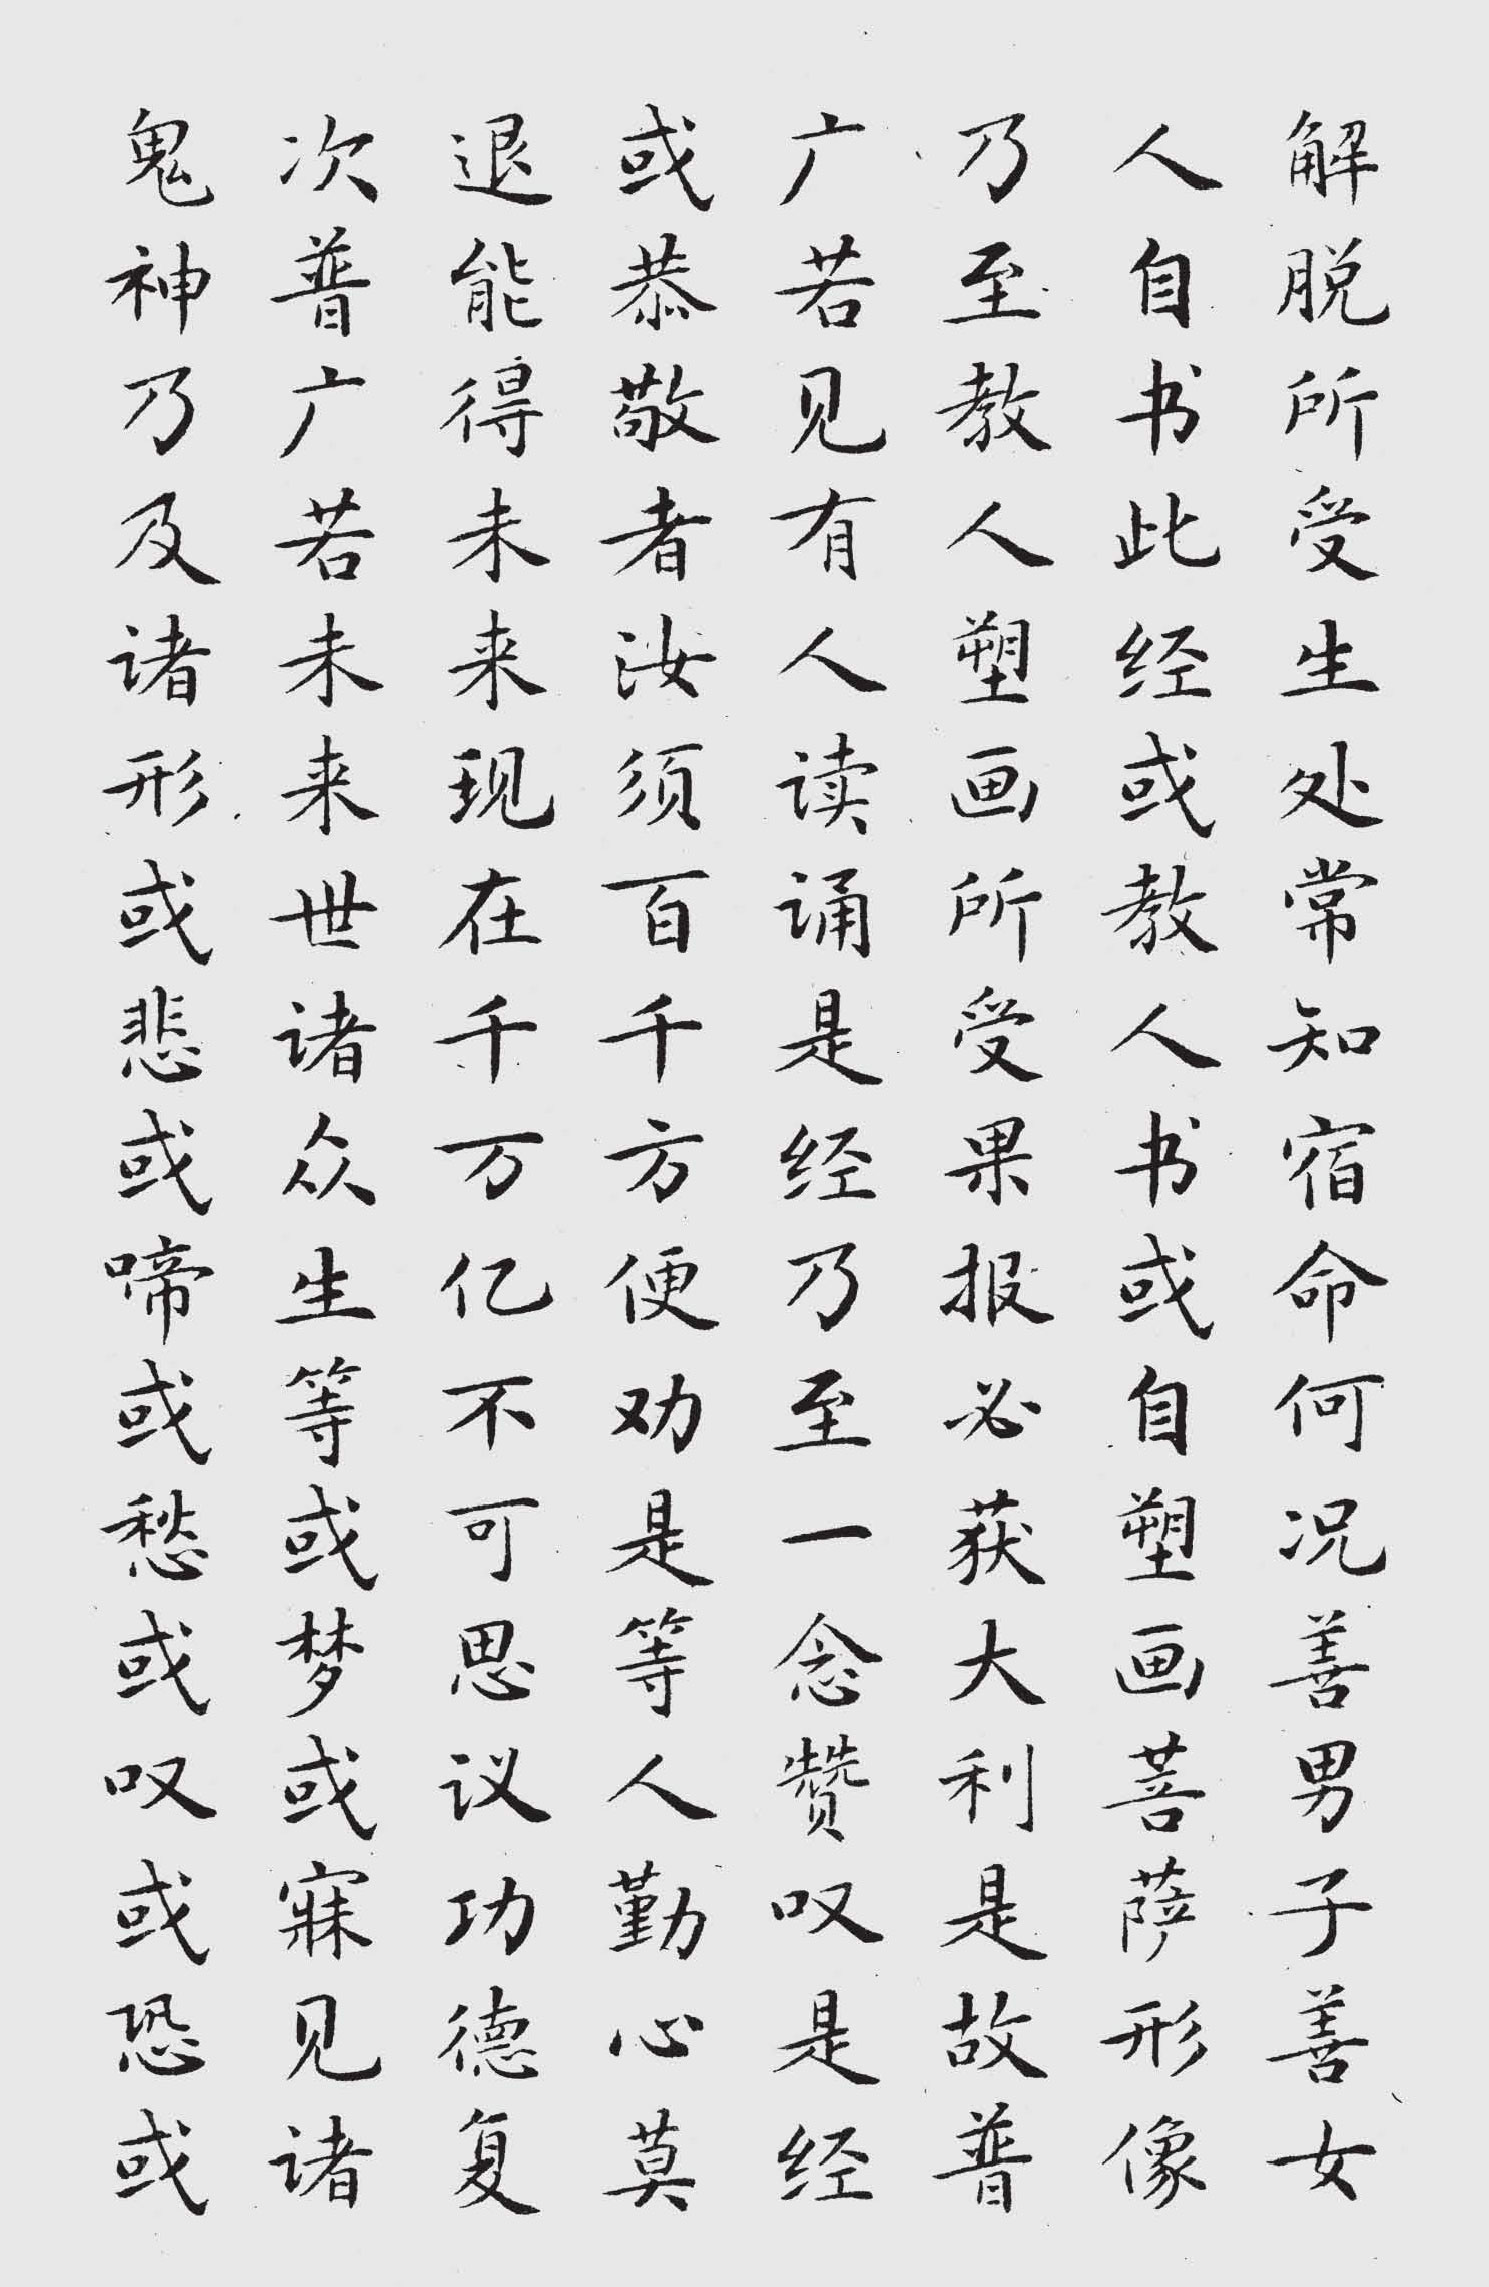 解脱所受生处常知宿命何况善男子善女
人自书此经或教人书或自塑画菩萨形像
乃至教人塑画所受果报必获大利是故普
广若见有人读诵是经乃至一念赞叹是经
或恭敬者汝须百千方便劝是等人勤心莫
退能得未来现在千万亿不可思议功德复
次普广若未来世诸众生等或梦或寐见诸
鬼神乃及诸形或悲或啼或愁或叹或恐或